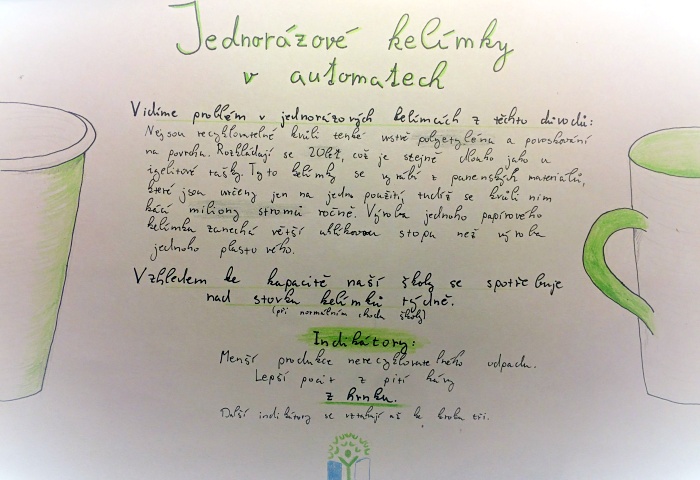 Jednorázové kelímky
v automatech
Vidíme problém v jednorázových kelímcích z těchto důvodů:
Nejsou recyklovatelné kvůli tenké vrstvě polyetylénu a povoskování
na povrchu. Rozkládají se 20 let, což je stejně dlouho jako u
igelitové tašky. Tyto kelímky se vyrábí z panenských materiálů,
které jsou určeny jen na jedno použití, tudíž se kvůli nim
kácí miliony stromů ročně. Výroba jednoho papírového
kelímku zanechá větší uhlíkovou stopu než výroba
jednoho plastového.
Vzhledem ke kapacitě naší školy se spotřebuje
nad stovku kelímků týdně.
(při normálním chodu školy)
Indikátory:
Menší produkce nerecyklovatelného odpadu.
Lepší pocit z pití kávy
z hrnku.
Další indikátory se vztahují až ke kroku tři.